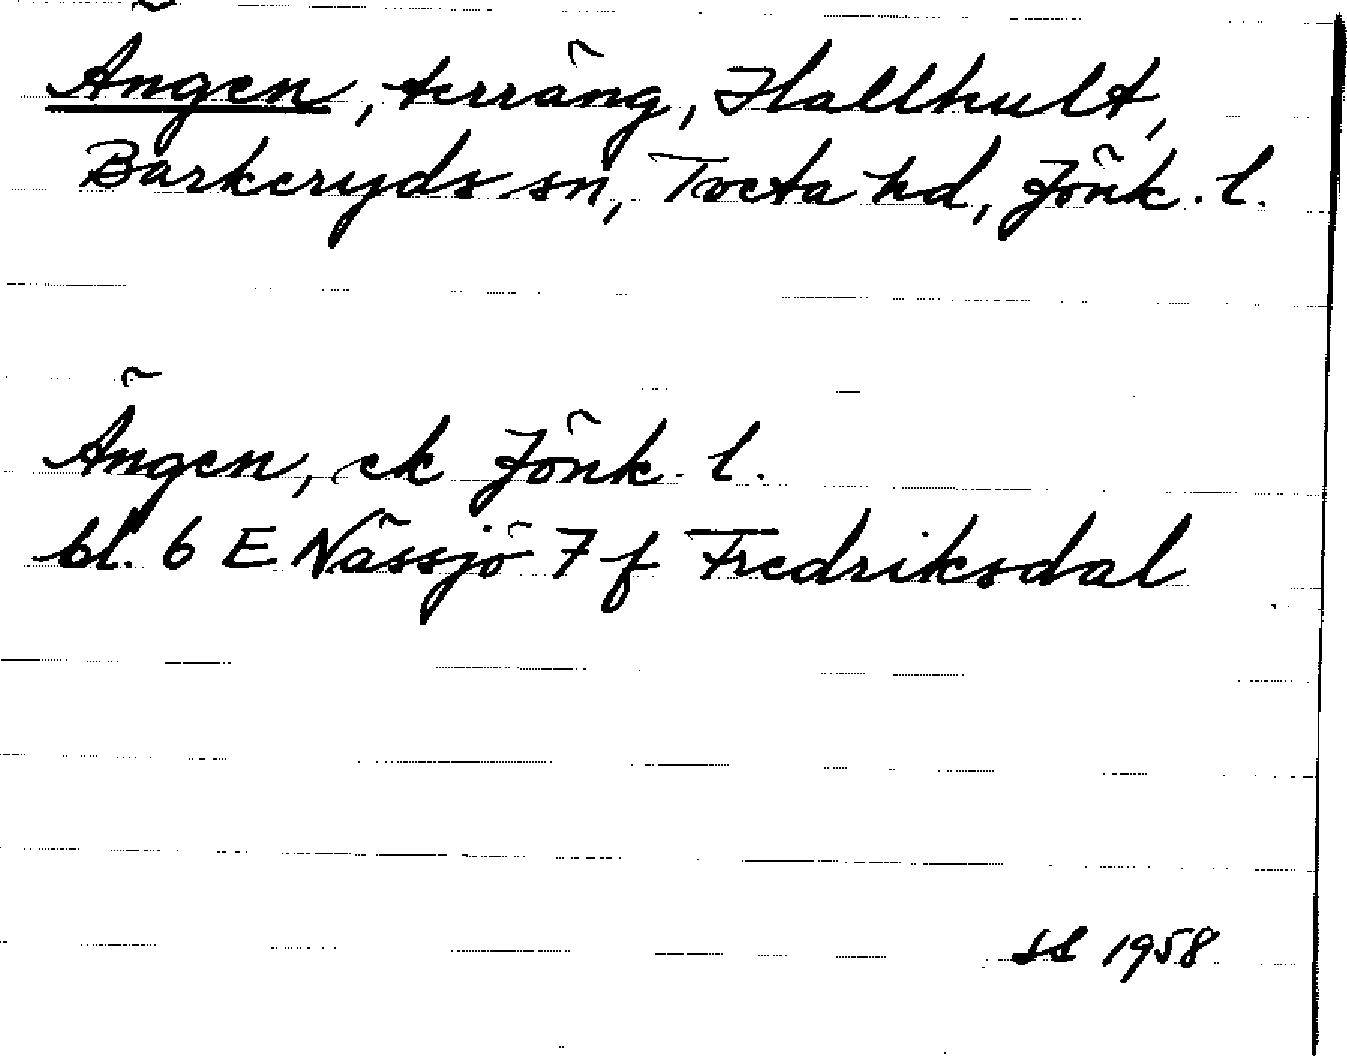 Ängen, terräng, Hallhult,
Barkeryds sn, Tveta hd, Jönk. l.
Ängen, ek Jönk. l.
bl. 6 E Nässjö 7 f Fredriksdal
SS 1958